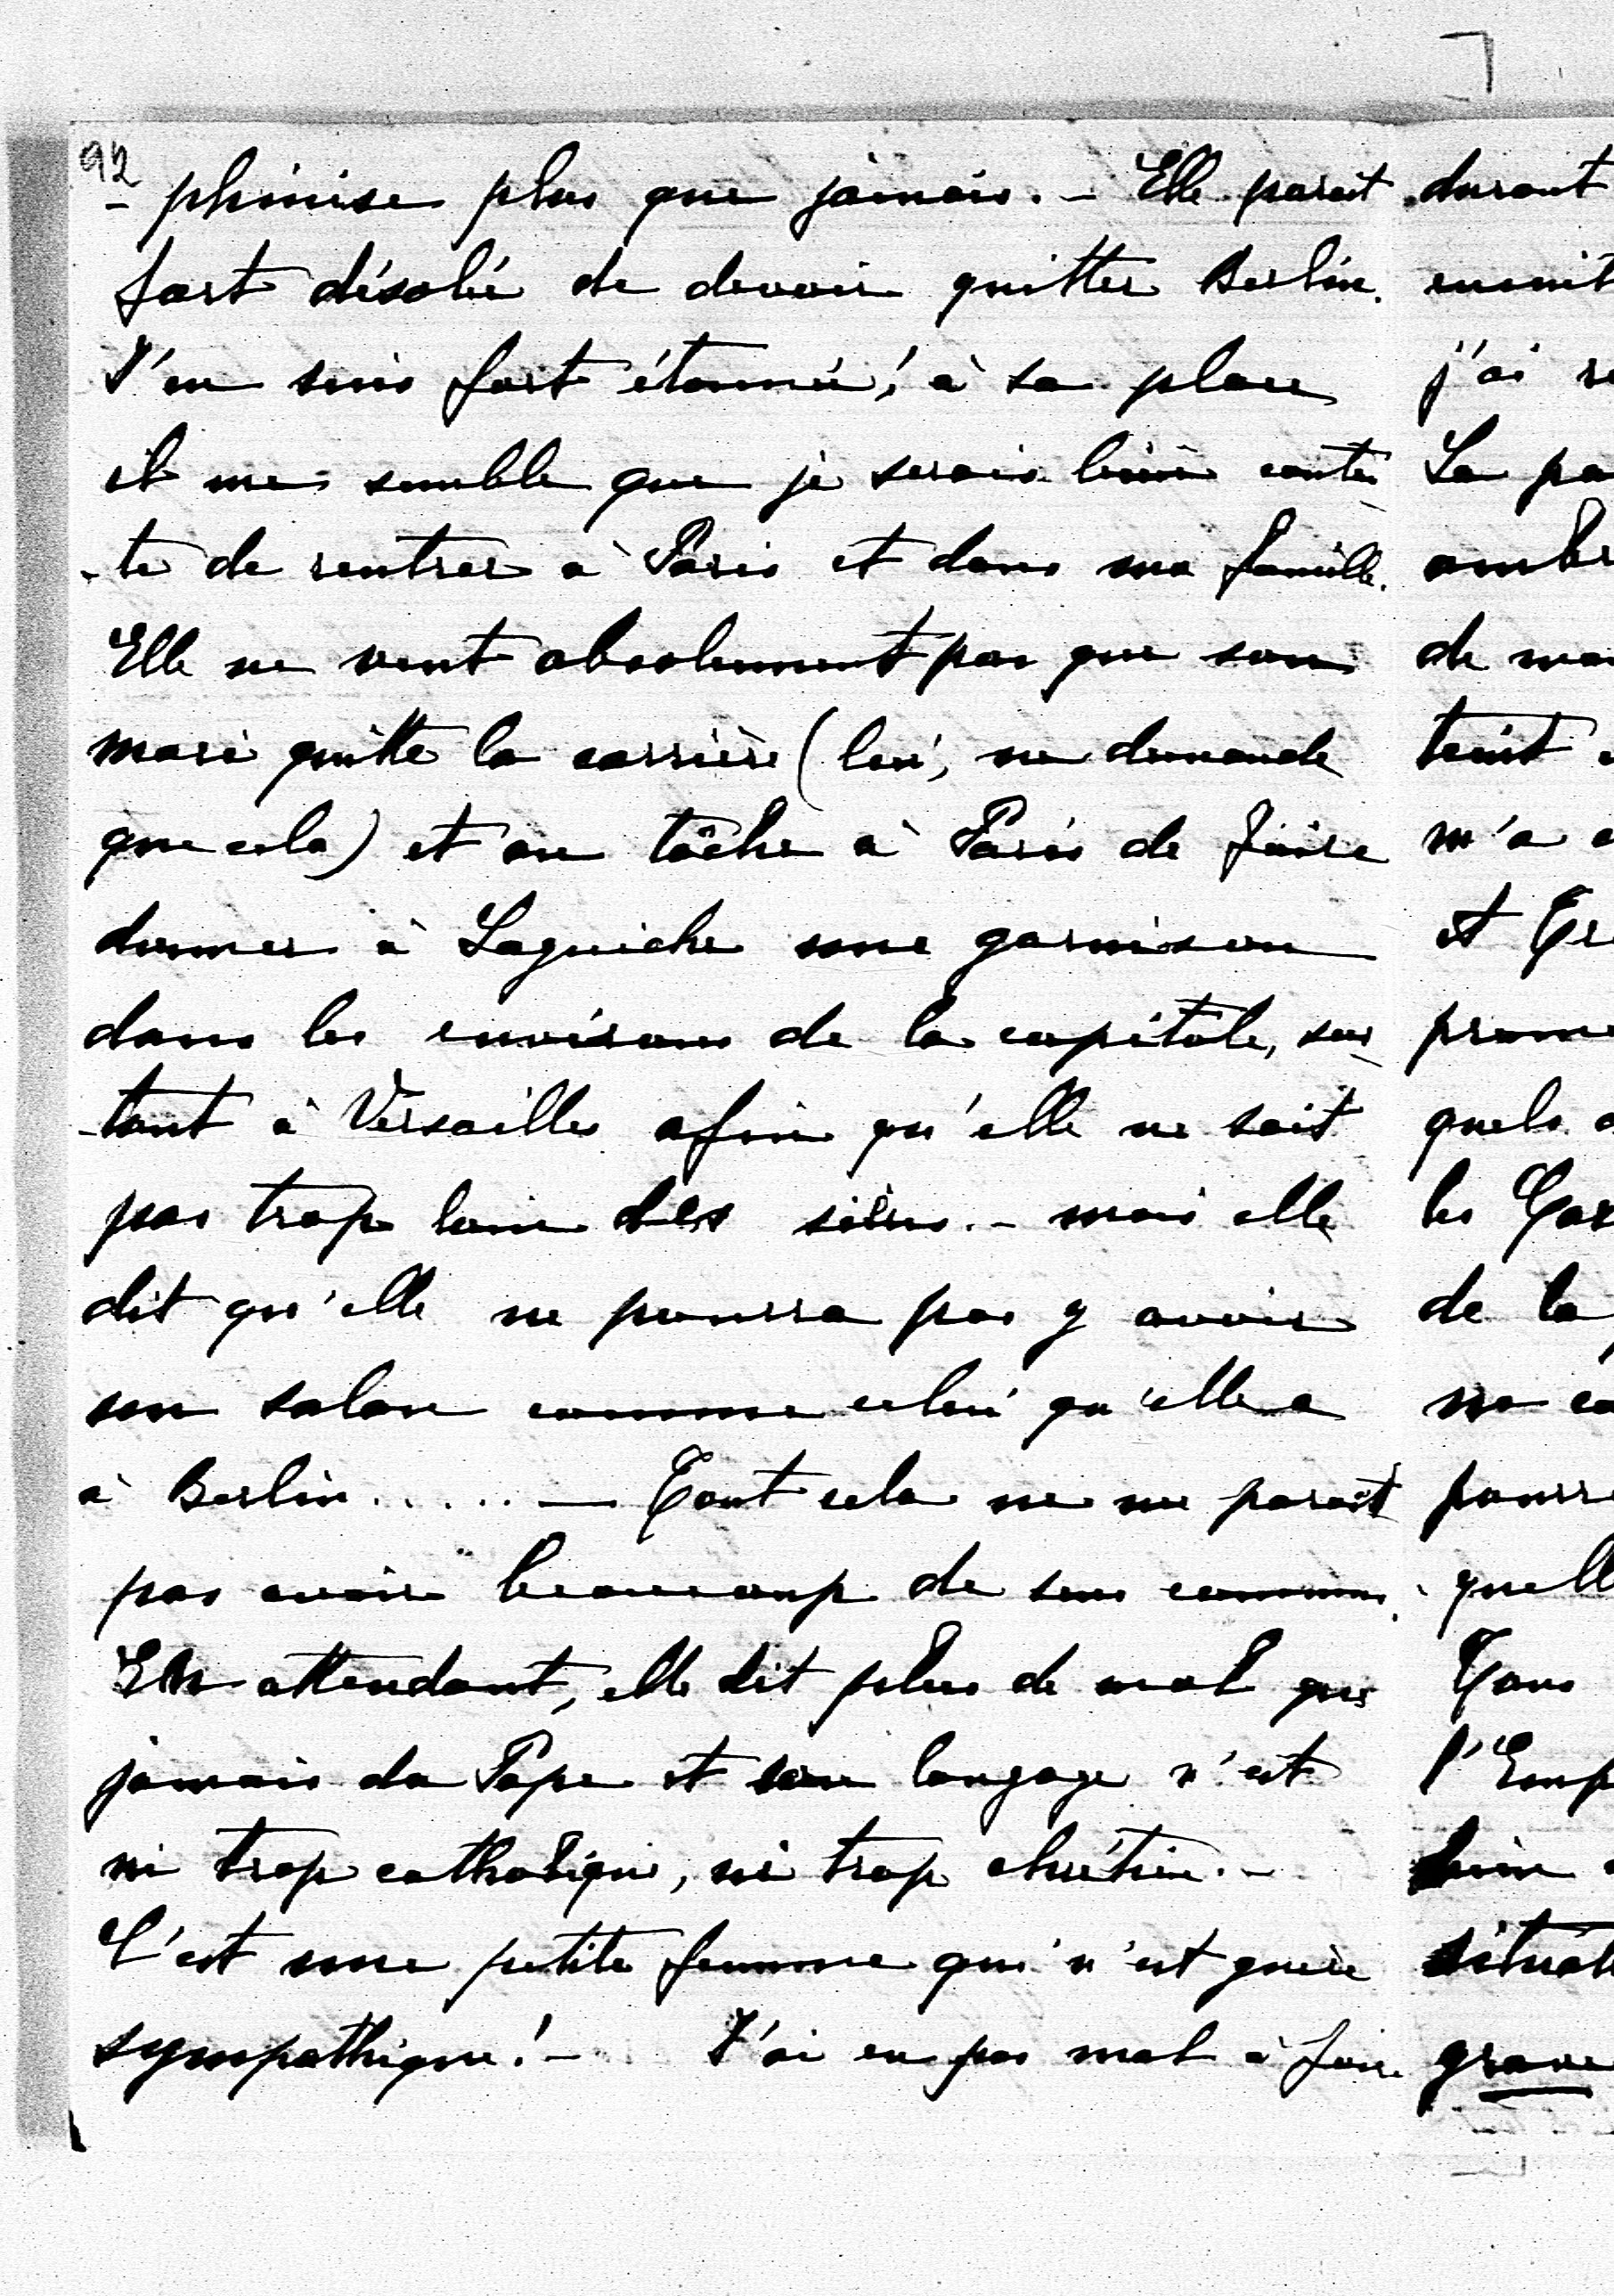 92
- phinise plus que jamais. - Elle parait
fort désolée de devoir quitter Berlin.
J'en suis fort étonnée; à sa place
il me semble que je serais bien conten-
-te de rentrer à Paris et dans ma famille.
Elle ne veut absolument pas que son
mari quitte la carrière (lui, ne demande
que cela) et on tâche à Paris de faire
donner à Laguiche une garnison
dans les environs de la capitale, sur-
-tout à Versailles afin qu'elle ne soit
pas trop loin des siens. - mais elle
dit qu'elle ne pourra pas y avoir
son salon comme celui qu'elle a
à Berlin..... — Tout cela ne me parait
pas avoir beaucoup de sens commun.
En attendant, elle dit plus de mal que
jamais du Pape et son langage n'est
ni trop catholique, ni trop chrétien. -
C'est une petite femme qui n'est guère
sympathique! - J'ai eu pas mal à faire
durant
ensuit
j'ai re
La pa
ombr
de mon
teint
m'a
et
prom
quels
les
de la
ma
pourr
quell
Tous
l'Emp
bien
situat
grave